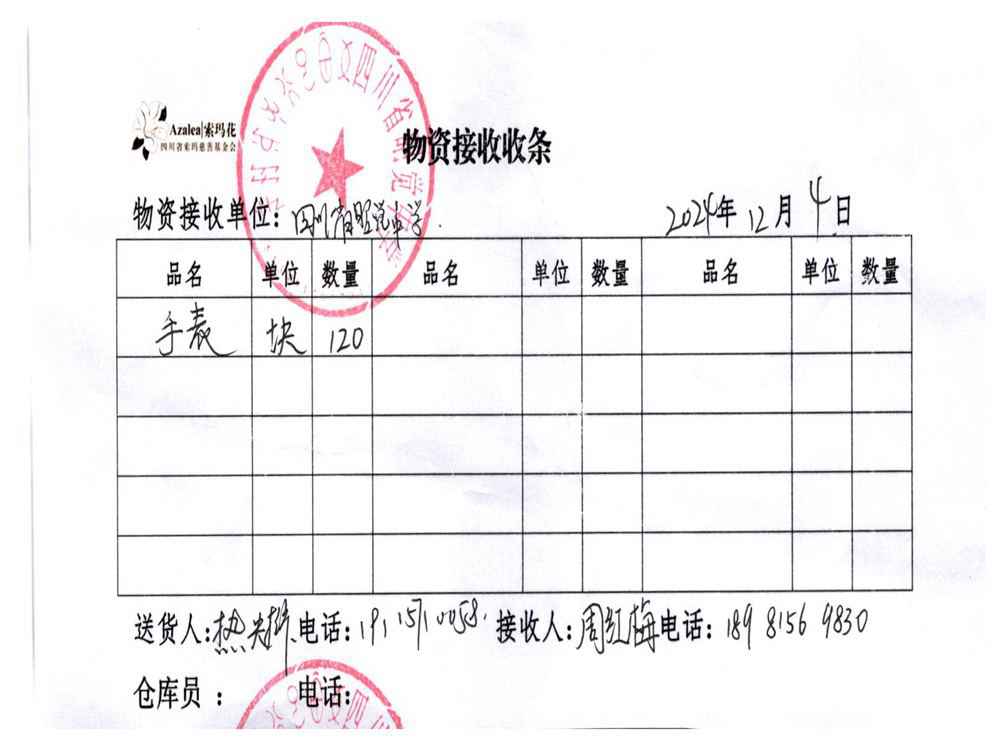 Azalea|索玛花
四川省索玛慈善基金会
物资接收收条
物资接收单位：四川省昭觉中学.
2024年12月4日
品名 单位 数量 品名 单位 数量 品名 单位 数量
手表 块 120
送货人： 电话：191 1571 0058. 接收人：周红梅 电话：189 8156 9830
仓库员： 电话：
四川省昭觉中学
四川